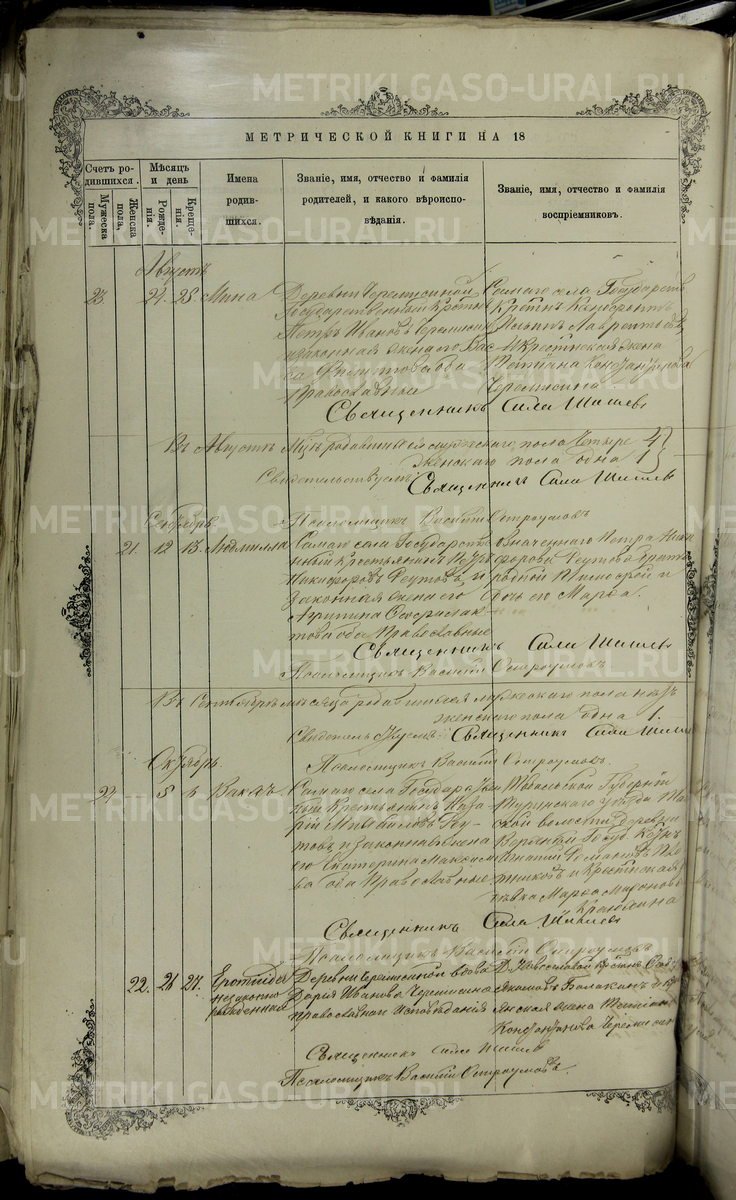 МЕТРИЧЕСКОЙ КНИГИ НА 18
Счетъ ро-
дившихся.
Мужеска пола.
Женска пола,
Мѣсяцъ и день
Рожде-
нія.
Креще-
нія.
Имена
родив-
шихся.
Званіе, имя, отчество и фамилія
родителей, и какого вѣроиспо-
вѣданія.
Званіе, имя, отчество и фамилія
воспріемниковъ.
Августъ
23 24. 25. Мина
Деревни Черемисиной
Государственный Крестьян
Петръ Ивановъ Черемисин
и законная жена его Вас
православные
Самаго села Государств
Крестн
Лаврентьевъ
и Крестьнская жена
Татіана Констанинова
Черемисина
Священникъ Сила Шишевъ
Въ Августѣ Мцѣ родившихся мужескаго пола Четыре 4
женскаго пола одна 1
Свидетельствуемъ: Священникъ Сила Шишевъ
Сентябрь
Псаломщикъ Василій Остроумовъ
21. 12 13. Людмилла
Самаго села Государстве
нный Крестьянинъ Петръ
Никифоровъ Реутовъ, и
законная жена его
това оба Православные
означеннаго Петра Ники
форова Реутова братъ
родной Тимофей и
дочь его Марѳа.
Священникъ Сила Шишевъ
Псаломщикъ Василій Остроумовъ
Въ Сентябрѣ мѣсяца родившихся мужескаго пола
женскаго пола одна 1.
Свидетельствуемъ: Священникъ Сила Шишев
Октябрь.
Псаломщикъ Василій Остроумовъ.
24 5 6 Вакхъ
Самаго села Государствен
ный Крестьянинъ Наза
рій Михайловъ Реу-
товъ и законная жена
его Екатерина Максимо
ва оба Православные
Тобольской Губерніи
Туринскаго уезда
ской волости Деревни
Игнатій Романовъ
и Крестьнская
девка Марѳа Миронова
Священникъ Сила Шишевъ
Псаломщикъ Василій Остроумовъ
22. 26 27. Еротиида
незаконно
рожденная
Деревни Черемисиной вдова
Дарія Иванова Черемисина
православнаго исповѣданія
янская жена Татіана
Констанинова Черемисин
Священникъ Сила Шишевъ
Псаломщикъ Василій Остроумовъ.
METRIKI.GASO-URAL.RU